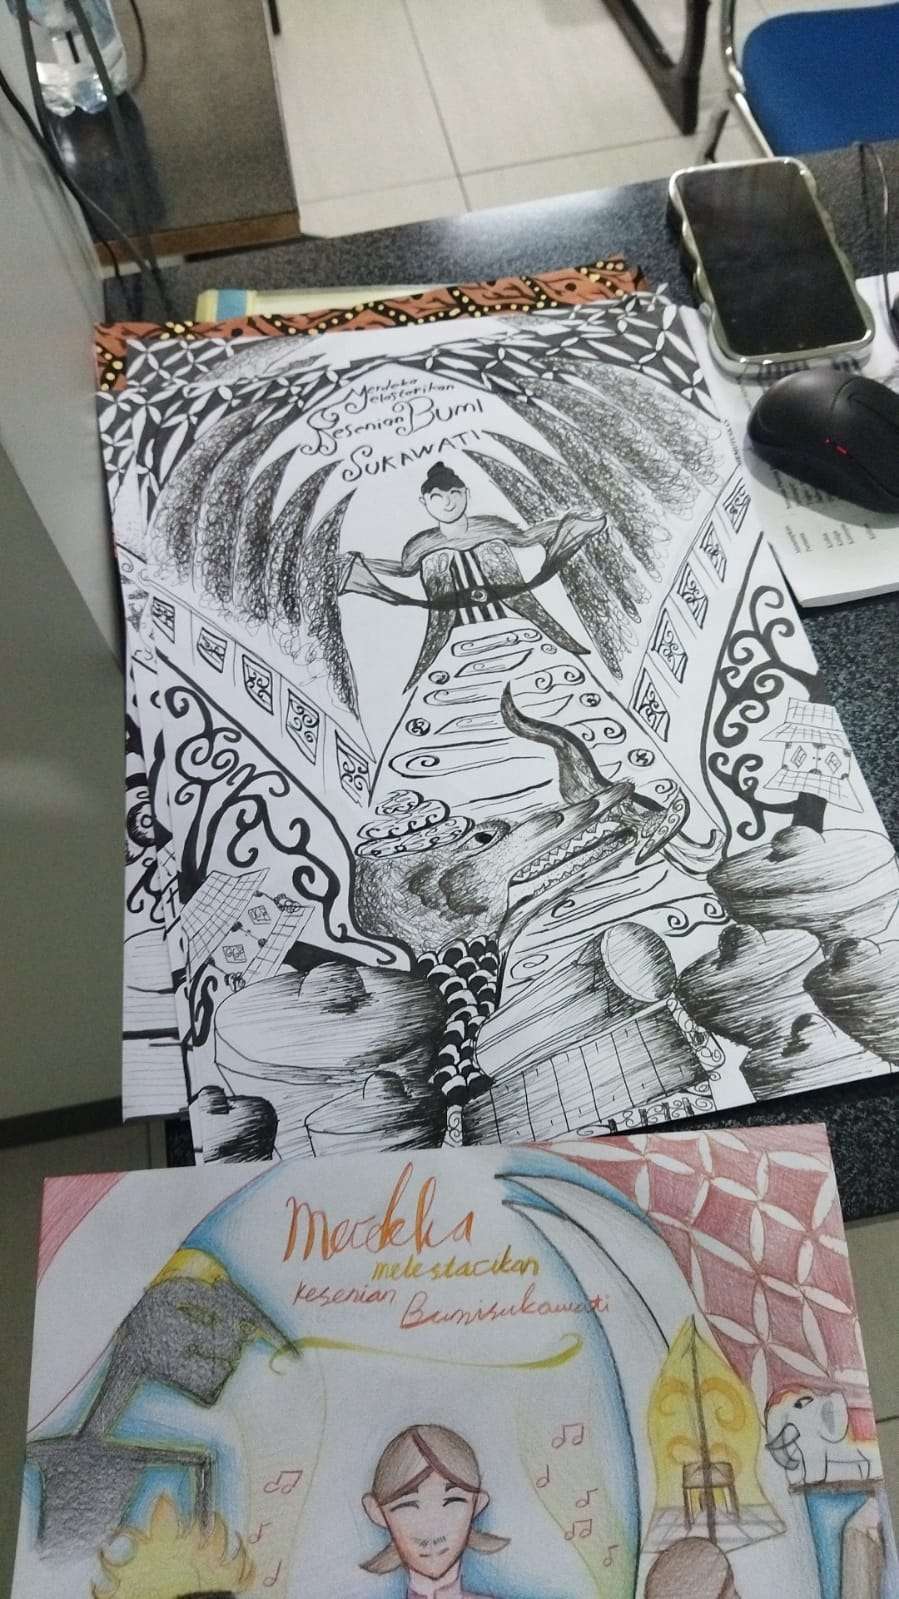 Merdeka
Melestarikan
Kesenian Bumi
SUKAWATI
Merdeka
melestarikan
kesenian
Bumisukawati